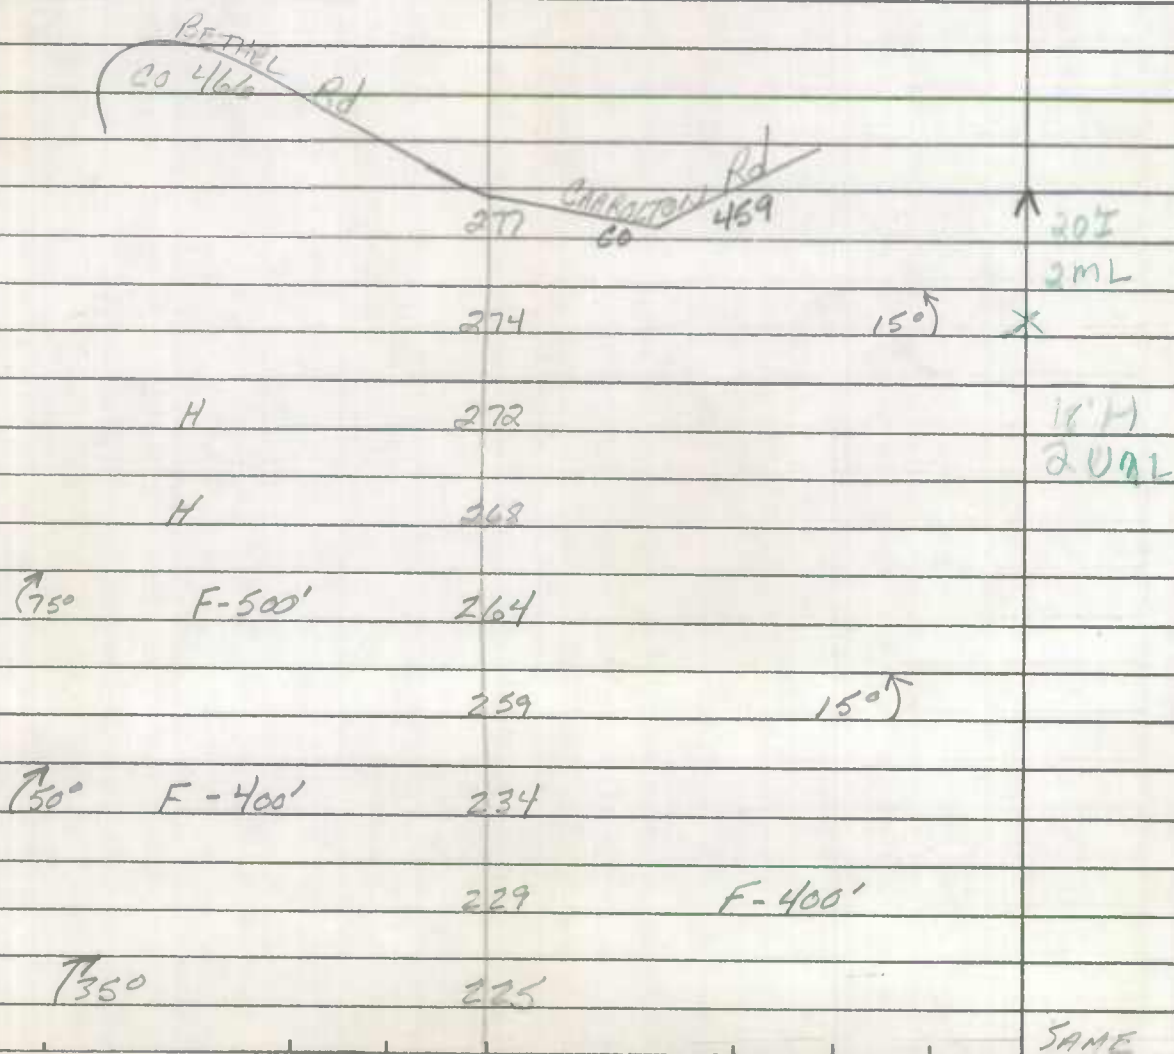 BETHEL
CO 466 Rd
CARROLTON Rd
277 CO 459
20I
2mL
274 15° X
H 272
H 268
75° F-500' 264
259 15°
50° F-400' 234
229 F-400'
35° 225
SAME